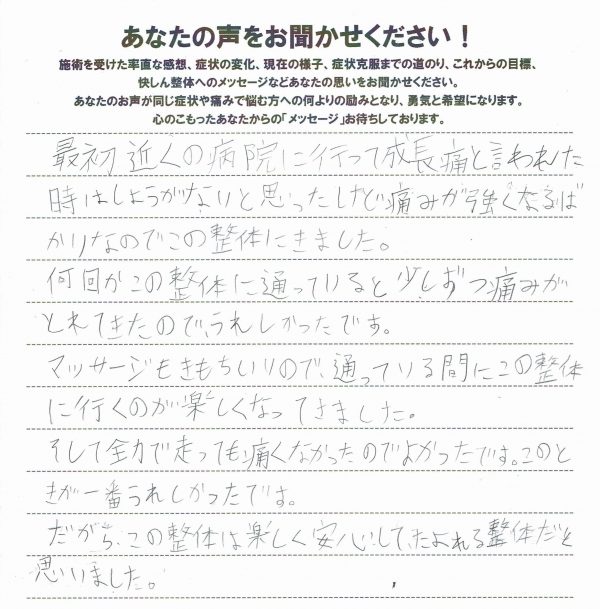 あなたの声をお聞かせください！
施術を受けた率直な感想、症状の変化、現在の様子、症状克服までの道のり、これからの目標、
快しん整体へのメッセージなどあなたの思いをお聞かせください。
あなたのお声が同じ症状や痛みで悩む方への何よりの励みとなり、勇気と希望になります。
心のこもったあなたからの「メッセージ」お待ちしております。
最初近くの病院に行って成長痛と言われた
時はしょうがないと思ったけど痛みが強くなるば
かりなのでこの整体にきました。
何回かこの整体に通っていると少しずつ痛みが
とれてきたので、うれしかったです。
マッサージもきもちいいので、通っている間にこの整体
に行くのが楽しくなってきました。
そして全力で走っても、痛くなかったのでよかったです。このと
きが一番うれしかったです。
だから、この整体は楽しく安心して、たよれる整体だと
思いました。